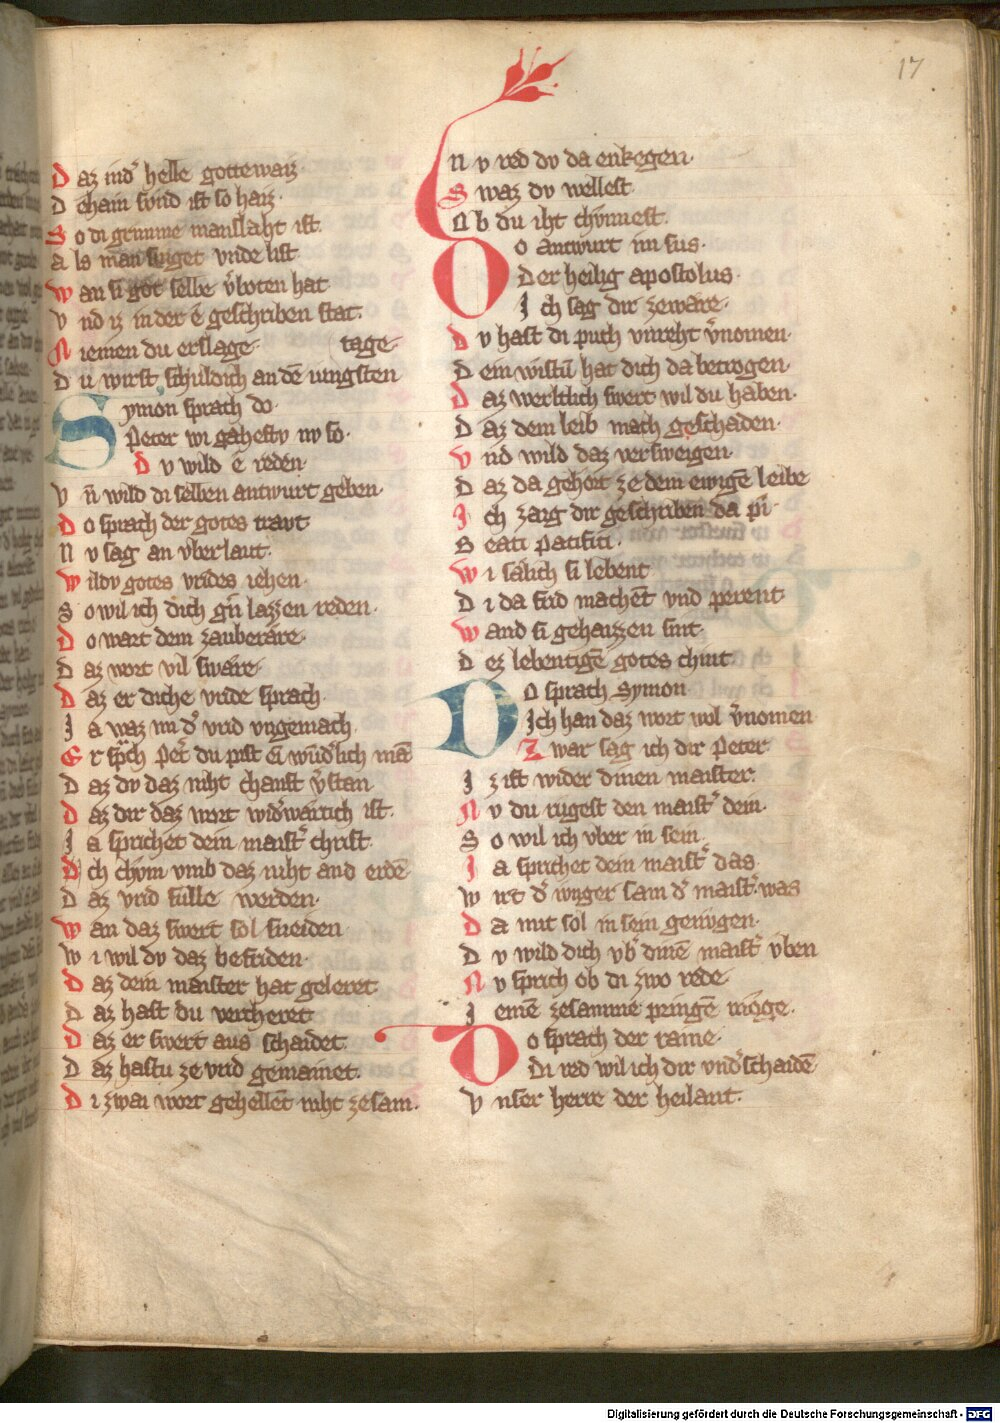 17
D az ind̾ helle gottewaiz
D ehain sund ist so haiz·
S o di grimme manslaht ist.
a ls man swiget vnde list
W an si got selbe v̾boten hat
V nd iz in der e geschriben stat.
N iemen du erslage· tage·
D u wirst schuldich an dē iungsten
Symon sprach do·
Peter wi gahestv nv so·
D v wild e reden·
V n̄ wild di selben antwurt geben·
D o sprach der gotes travt
N v sag an vberlaut.
W ildv gotes vrides iehen·
S o wil ich dich gn̄ lazzen reden·
D o wart dem zauberäre·
D az wort vil swäre·
D az er diche vride sprach·
J a waz im d̾ vrid vngemach·
E r sprͣch Pet̾ du pist ein wnd̾lich mā
D az dv daz niht chanst v̾stan·
D az dir daz wort wid̾wärtich ist·
J a sprichet dein maist̾ christ·
I ch chvm vmb daz niht and erdē·
D az vrid sulle werden·
W an daz swert sol sneiden·
W i wil dv daz befriden·
D az dein maister hat geleret
D az hast du vercheret
D az er swert aus schaidet·
D az hastu ze vrid gemainet·
D i zwai wort gehellēt niht zesam·
N v red dv da enkegen·
S waz dv wellest·
O b du iht chvnnest·
Do antwurt im sus·
Der heilig apostolus·
J ch sag dir zeware·
D v hast di puch vnreht v̾nomen·
D ein wistū hat dich da betrogen·
D az werltlich swert wil du haben·
D az dem leib mach geschaden·
V nd wild daz versweigen·
D az da gehört ze dem ewigē leibe
J ch zaig dir geschriben da pi·
B eati pacifici·
W i sälich si lebent
D i da frid machēt vnd perent
W and si gehaizzen sint·
D ez lebentigē gotes chint·
DO sprach Symon
Jch han daz wort wol v̾nomen
Z war sag ich dir Peter·
J z ist wider dinen maister·
N v du rugest den maist̾ dein·
S o wil ich vber in sein·
J a sprichet dein maist̾ das·
W irt d̾ iunger sam d̾ maist̾ was
D a mit sol in sein genvgen·
D v wild dich vb̾ dinē maist̾ vben
N v sprich ob di zwo rede·
J emē zesamme pringē müge·
Do sprach der raine·
Di red wil ich dir vnd̾schaidē·
V nser herre der heilant·
Digitalisierung gefördert durch die Deutsche Forschungsgemeinschaft - DFG